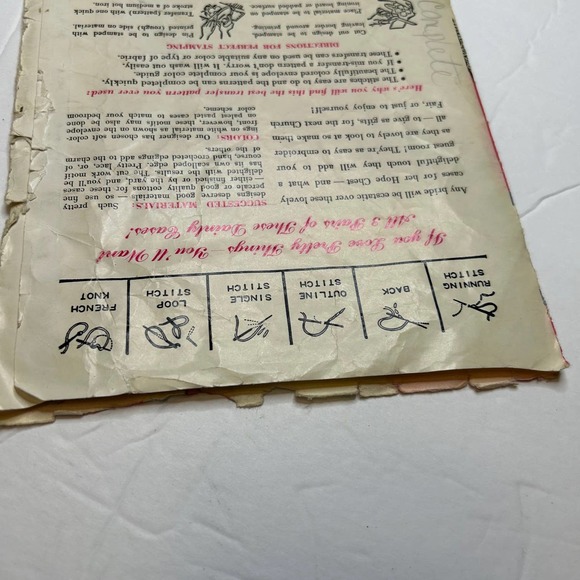 RUNNING
STITCH
BACK
OUTLINE
STITCH
SINGLE
STITCH
LOOP
STITCH
FRENCH
KNOT
If you Love Pretty Things You'll Want
All 3 Pairs of These Dainty Cases!
Any bride will be ecstatic over these lovely
cases for her Hope Chest — and what a
delightful touch they will add to your
guest room! They're as easy to embroider
as they are lovely to look at so make them
all — to give as gifts, for the next Church
Fair, or just to enjoy yourself!
SUGGESTED MATERIALS: Such pretty
designs deserve good materials — so use fine
percale or good quality cotton for these cases
— either finished or by the yard, and you'll be
delighted with the results. The cut work motif
has its own scalloped edge. Pretty lace, or, of
course, hand crocheted edgings add to the charm
of the others.
COLORS: Our designer has chosen soft color-
ings on white material as shown on the envelope
front, however, these motifs may also be done
on pastel pastel cases to match your bedroom
color scheme.
Here's why you will find this the best transfer pattern you ever used:
• The stitches are easy to do and the patterns can be completed quickly.
• The beautifully colored envelope is your complete color guide.
• If you misstamp a pattern don't worry. It will wash out easily.
• These transfers can be used on any suitable color or type of fabric.
DIRECTIONS FOR PERFECT STAMPING
Cut out design to be
stamped, leaving border
around printing.
Place material to be stamped on
ironing board or padded surface.
Pin design to be stamped with
printed (rough) side on material.
Transfer pattern with one quick
stroke of medium hot iron.